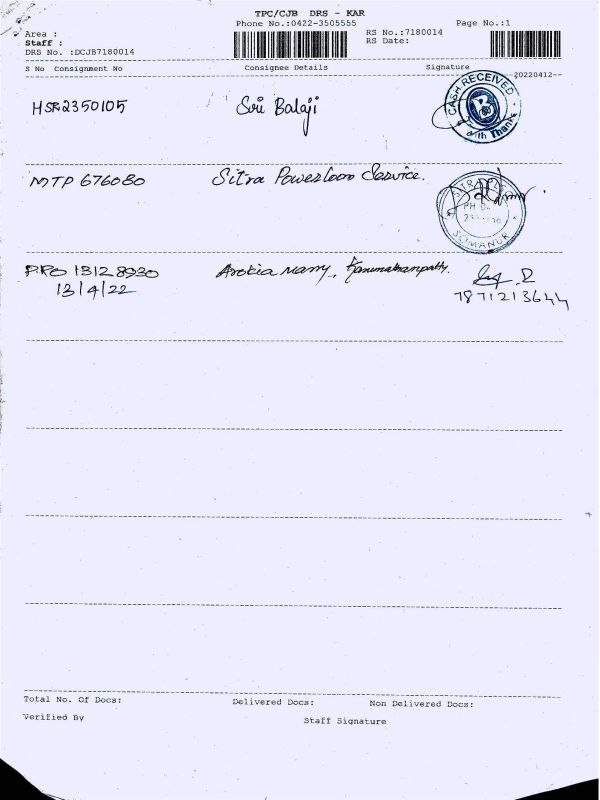 TPC/CJB DRS - KAR
Phone No.:0422-3505555
Page No.:1
Area :
Staff :
DRS No. :DCJB7180014
RS No.:7180014
RS Date:
S No Consignment No Consignee Details Signature
--20220412--
HSR2350105 Sri Balaji
CASH RECEIVED
B
With Thanks
MTP 676080 Sitra Powerloom Service.
SOMANUR
PPO 13128930 Arokia Mary, Karumathampatty.
13/4/22
7871213644
Total No. Of Docs: Delivered Docs: Non Delivered Docs:
Verified By Staff Signature